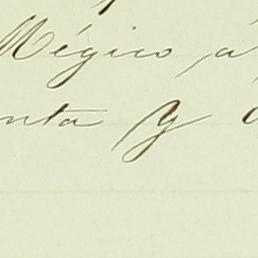 Mégico á
nta y